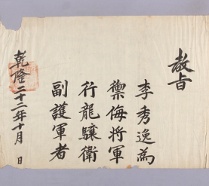 敎旨
李秀逸為
禦侮將軍
行龍驤衛
副護軍者
乾隆二十二年十月 日